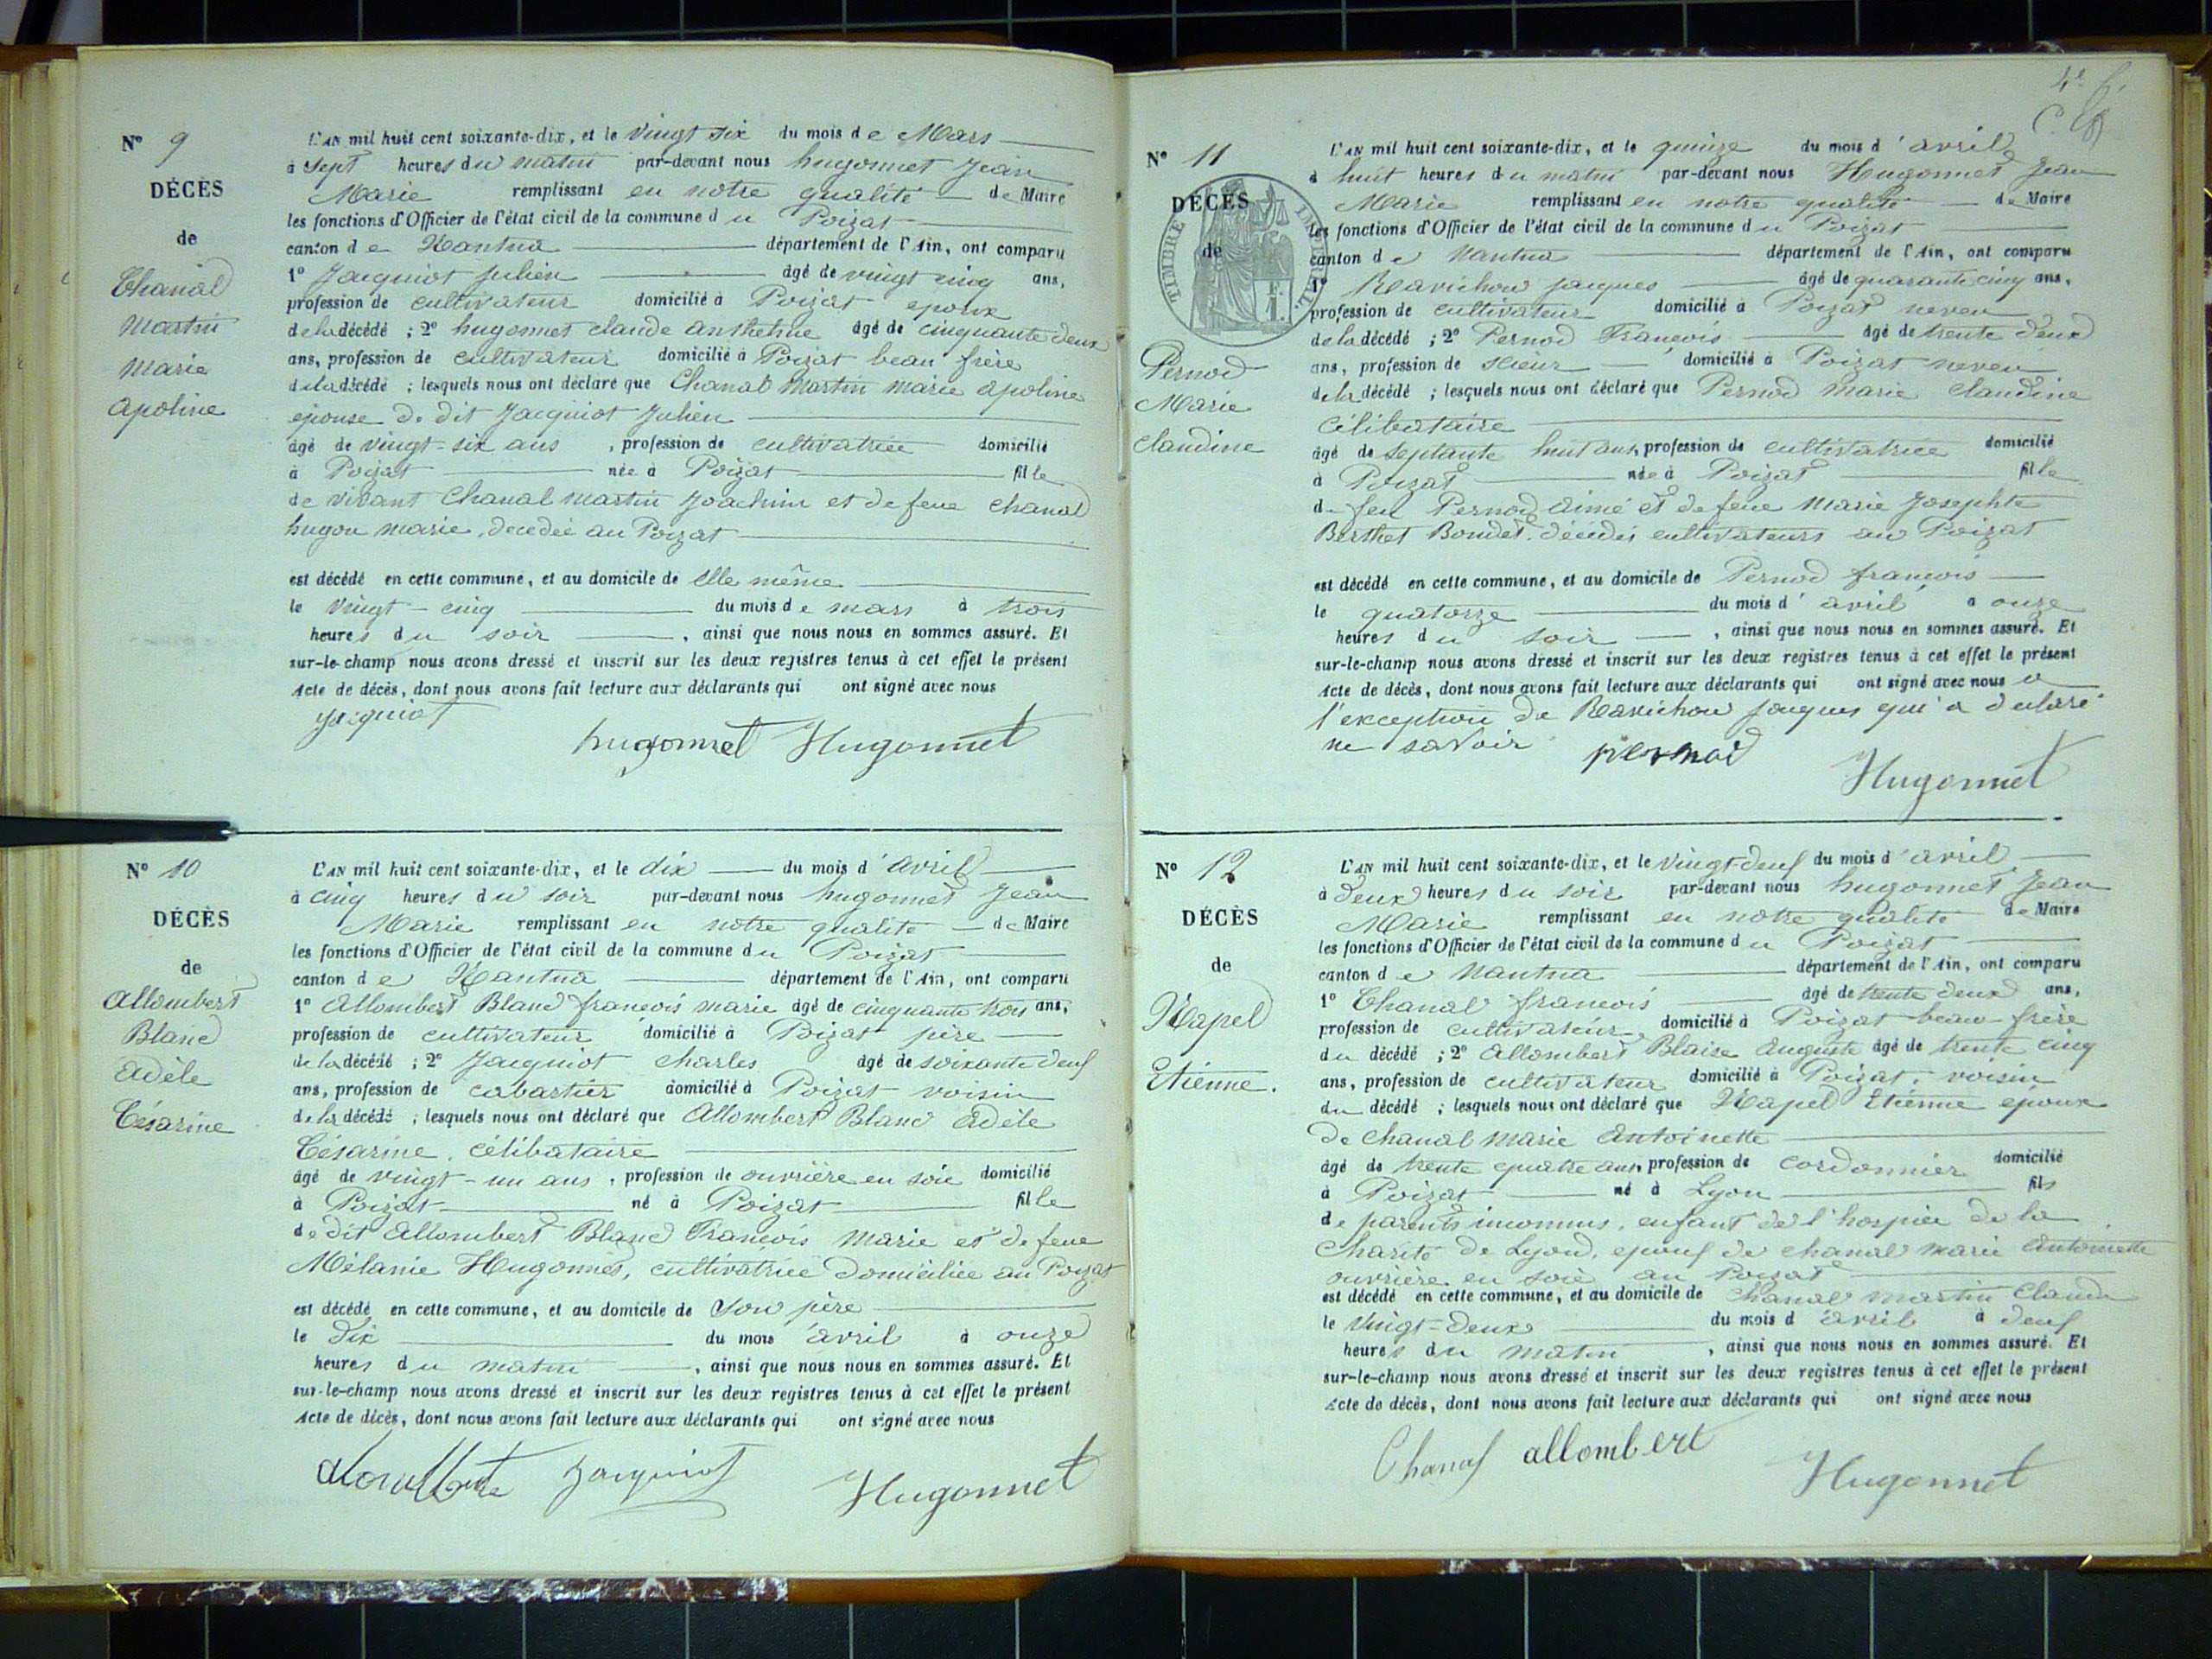 N° 9
DÉCÈS
de
Chanal
Martin
Marie
Apoline
L'AN mil huit cent soixante-dix, et le vingt six du mois de Mars
à Sept heures du matin par-devant nous hugonnet Jean
Marie remplissant en notre qualité de Maire
les fonctions d'Officier de l'état civil de la commune du Poizat
canton de Nantua département de l'Ain, ont comparu
1° Jacquiot Julien âgé de vingt cinq ans,
profession de cultivateur domicilié à Poizat epoux
de la décédé ; 2° hugonnet claude anthelme âgé de cinquante deux
ans, profession de cultivateur domicilié à Poizat beau frère
de la décédé ; lesquels nous ont déclaré que Chanal Martin marie apoline
epouse de dit Jacquiot Julien
âgé de vingt-six ans, profession de cultivatrice domicilié
à Poizat née à Poizat fille
de vivant Chanal martin Joachim et de feue chanal
hugon marie, décédée au Poizat
est décédé en cette commune, et au domicile de elle même
le vingt-cinq du mois de mars à trois
heures du soir, ainsi que nous nous en sommes assuré. Et
sur-le-champ nous avons dressé et inscrit sur les deux registres tenus à cet effet le présent
Acte de décès, dont nous avons fait lecture aux déclarants qui ont signé avec nous
Jacquiot
hugonnet Hugonnet
N° 10
DÉCÈS
de
Allombert
Blanc
Adèle
Césarine
L'AN mil huit cent soixante-dix, et le dix du mois d'avril
à cinq heures du soir par-devant nous hugonnet Jean
Marie remplissant en notre qualité de Maire
les fonctions d'Officier de l'état civil de la commune du Poizat
canton de Nantua département de l'Ain, ont comparu
1° Allombert Blanc françois marie âgé de cinquante trois ans,
profession de cultivateur domicilié à Poizat père
de la décédé ; 2° Jacquiot Charles âgé de soixante deuf
ans, profession de cabartier domicilié à Poizat voisin
de la décédé ; lesquels nous ont déclaré que Allombert Blanc Adèle
Césarine, célibataire
âgé de vingt-un ans, profession de ouvrière en soie domicilié
à Poizat né à Poizat fille
de dit Allombert Blanc François Marie et de feue
Mélanie Hugonnet, cultivatrice domiciliée au Poizat
est décédé en cette commune, et au domicile de son père
le dix du mois avril à onze
heures du matin, ainsi que nous nous en sommes assuré. Et
sur-le-champ nous avons dressé et inscrit sur les deux registres tenus à cet effet le présent
Acte de décès, dont nous avons fait lecture aux déclarants qui ont signé avec nous
Jacquiot Hugonnet
N° 11
DÉCÈS
de
TIMBRE IMPERIAL
Pernod
Marie
Claudine
L'AN mil huit cent soixante-dix, et le quinze du mois d'avril
à huit heures du matin par-devant nous Hugonnet Jean
Marie remplissant en notre qualité de Maire
les fonctions d'Officier de l'état civil de la commune du Poizat
canton de Nantua département de l'Ain, ont comparu
1° Ravichon jacques âgé de quarante cinq ans,
profession de cultivateur domicilié à Poizat neveu
de la décédé ; 2° Pernod François âgé de trente deux
ans, profession de scieur domicilié à Poizat neveu
de la décédé ; lesquels nous ont déclaré que Pernod Marie Claudine
Célibataire
âgé de septante huit ans, profession de cultivatrice domicilié
à Poizat née à Poizat fille
de feu Pernod aimé et de feue Marie Josephte
Berthet Bondet, décédés cultivateurs au Poizat
est décédé en cette commune, et au domicile de Pernod françois
le quatorze du mois d'avril à onze
heures du soir, ainsi que nous nous en sommes assuré. Et
sur-le-champ nous avons dressé et inscrit sur les deux registres tenus à cet effet le présent
Acte de décès, dont nous avons fait lecture aux déclarants qui ont signé avec nous a
l'exception de Ravichon jacques qui a déclaré
ne savoir pernod
Hugonnet
N° 12
DÉCÈS
de
Napel
Etienne.
L'AN mil huit cent soixante-dix, et le vingt-deuf du mois d'avril
à deux heures du soir par-devant nous hugonnet Jean
Marie remplissant en notre qualité de Maire
les fonctions d'Officier de l'état civil de la commune du Poizat
canton de Nantua département de l'Ain, ont comparu
1° Chanal françois âgé de trente deux ans,
profession de cultivateur domicilié à Poizat beau-frère
du décédé ; 2° Allombert Blaise Auguste âgé de trente cinq
ans, profession de cultivateur domicilié à Poizat, voisin
du décédé ; lesquels nous ont déclaré que Napel Etienne epoux
de chanal marie Antoinette
âgé de trente quatre ans, profession de cordonnier domicilié
à Poizat né à Lyon fils
de parents inconnus, enfant de l'hospice de la
Charité de Lyon, epouf de chanal marie Antoinette
ouvrière en soie au Poizat
est décédé en cette commune, et au domicile de Chanal martin Claude
le vingt-deux du mois d'avril à deuf
heures du matin, ainsi que nous nous en sommes assuré. Et
sur-le-champ nous avons dressé et inscrit sur les deux registres tenus à cet effet le présent
Acte de décès, dont nous avons fait lecture aux déclarants qui ont signé avec nous
Chanal allombert
Hugonnet